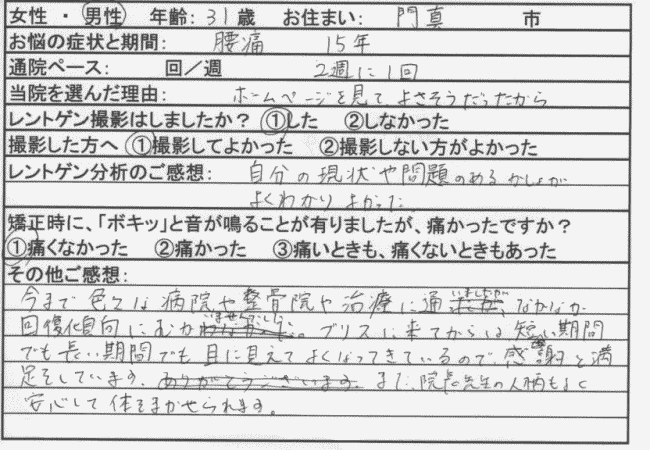 女性 ・ 男性 年齢: 31 歳 お住まい: 門真 市
お悩の症状と期間: 腰痛 15年
通院ペース: 回/週 2週に1回
当院を選んだ理由: ホームページを見て、よさそうだったから
レントゲン撮影はしましたか? ①した ②しなかった
撮影した方へ ①撮影してよかった ②撮影しない方がよかった
レントゲン分析のご感想: 自分の現状や問題のあるかしょが
よくわかりよかった
矯正時に、「ボキッ」と音が鳴ることが有りましたが、痛かったですか?
①痛くなかった ②痛かった ③痛いときも、痛くないときもあった
その他ご感想:
今まで色々な病院や整骨院や治療に通いましたが、なかなか
回復傾向にむかいませんでした。ブリスに来てからは短い期間
でも長い期間でも目に見えてよくなってきているので、感謝と満
足をしています。ありがとうございます。また、院長先生の人柄もよく
安心して体をまかせられます。